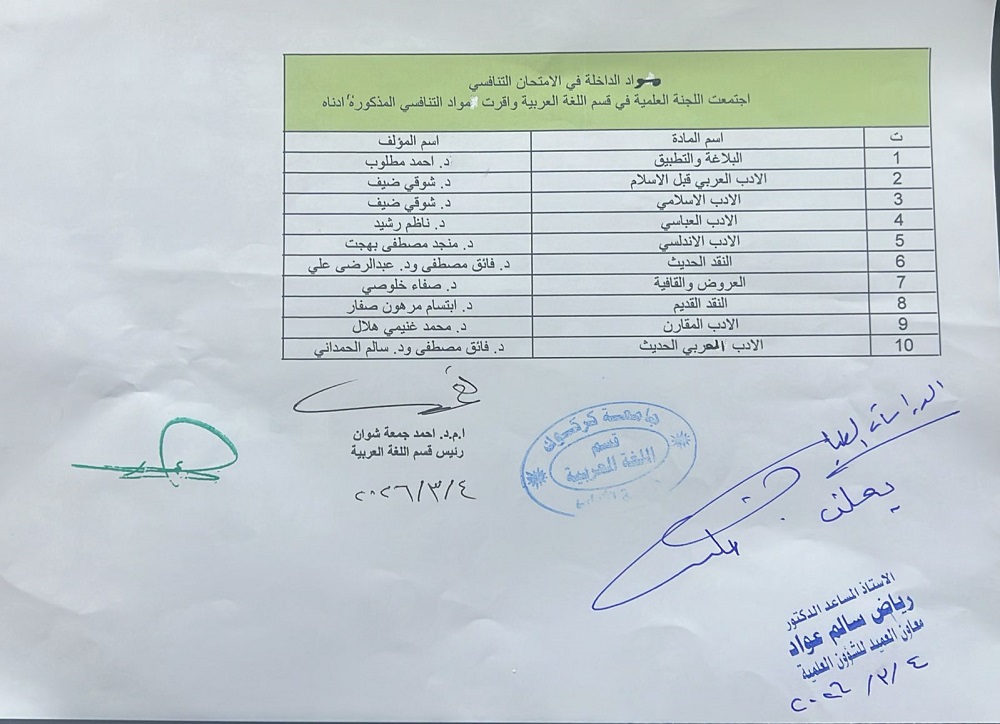 مواد الداخلة في الامتحان التنافسي
اجتمعت اللجنة العلمية في قسم اللغة العربية واقرت مواد التنافسي المذكورة ادناه
ت اسم المادة اسم المؤلف
1 البلاغة والتطبيق د. احمد مطلوب
2 الادب العربي قبل الاسلام د. شوقي ضيف
3 الادب الاسلامي د. شوقي ضيف
4 الادب العباسي د. ناظم رشيد
5 الادب الاندلسي د. منجد مصطفى بهجت
6 النقد الحديث د. فائق مصطفى ود. عبدالرضى علي
7 العروض والقافية د. صفاء خلوصي
8 النقد القديم د. ابتسام مرهون صفار
9 الادب المقارن د. محمد غنيمي هلال
10 الادب العربي الحديث د. فائق مصطفى ود. سالم الحمداني
ا.م.د. احمد جمعة شوان
رئيس قسم اللغة العربية
٢٠٢٦/٣/٤
جامعة كركوك
قسم
اللغة العربية
الدراسات العليا
يعلن
الاستاذ المساعد الدكتور
رياض سالم عواد
معاون العميد للشؤون العلمية
٢٠٢٦/٣/٤